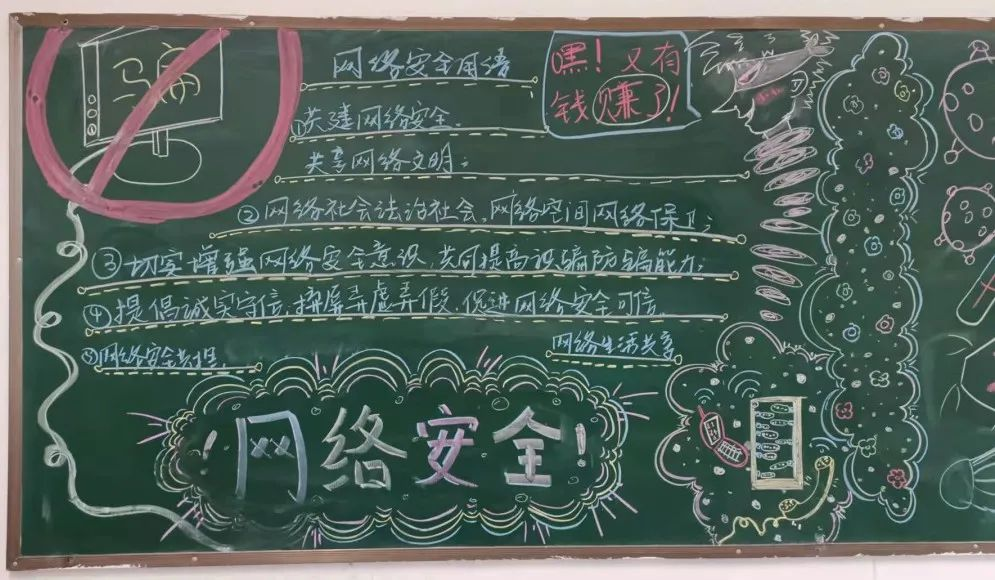 网络安全用语
嘿！又有
钱赚了！
①共建网络安全.
共享网络文明；
②网络社会法治社会,网络空间网络保卫；
③切实增强网络安全意识,共同提高识骗防骗能力；
④提倡诚实守信,摒弃弄虚弄假,促进网络安全可信.
⑤网络安全共担
网络生活共享
!网络安全!